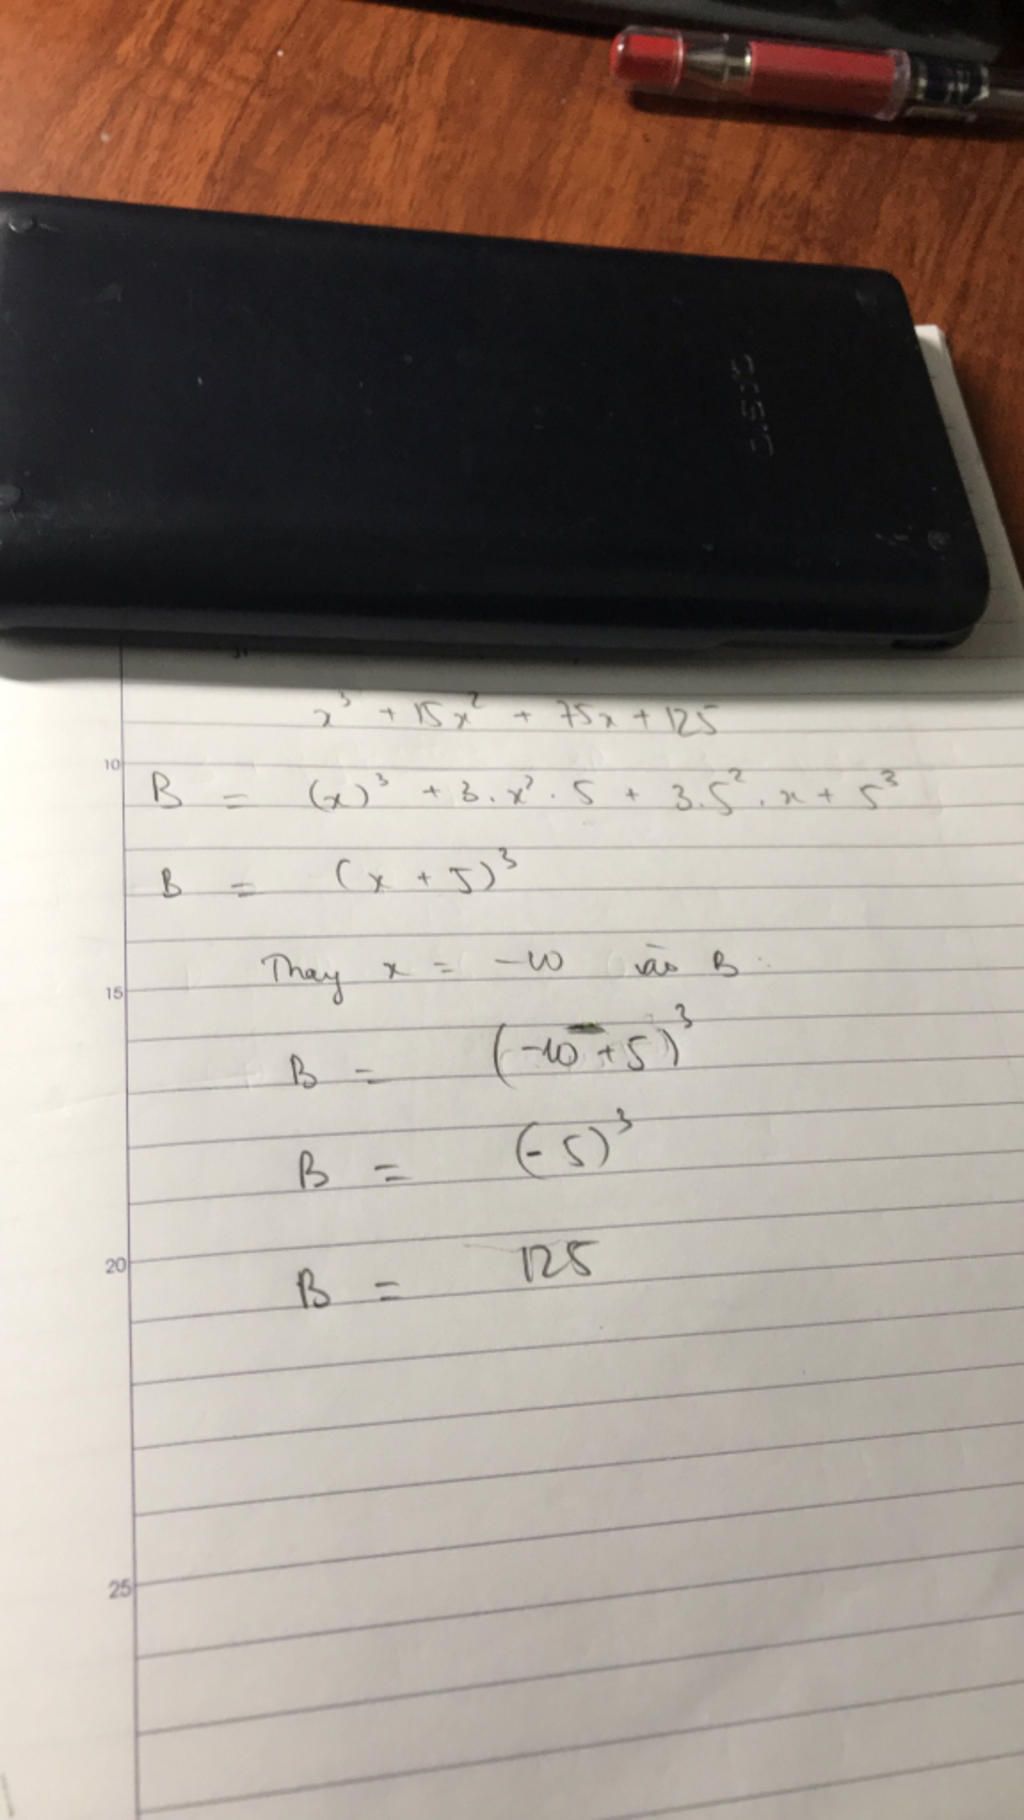 CASIO
x³ + 15x² + 75x + 125
10
B = (x)³ + 3.x².5 + 3.5².x + 5³
B = (x + 5)³
Thay x = -10 vào B:
15
B = (-10 + 5)³
B = (-5)³
20
B = 125
25